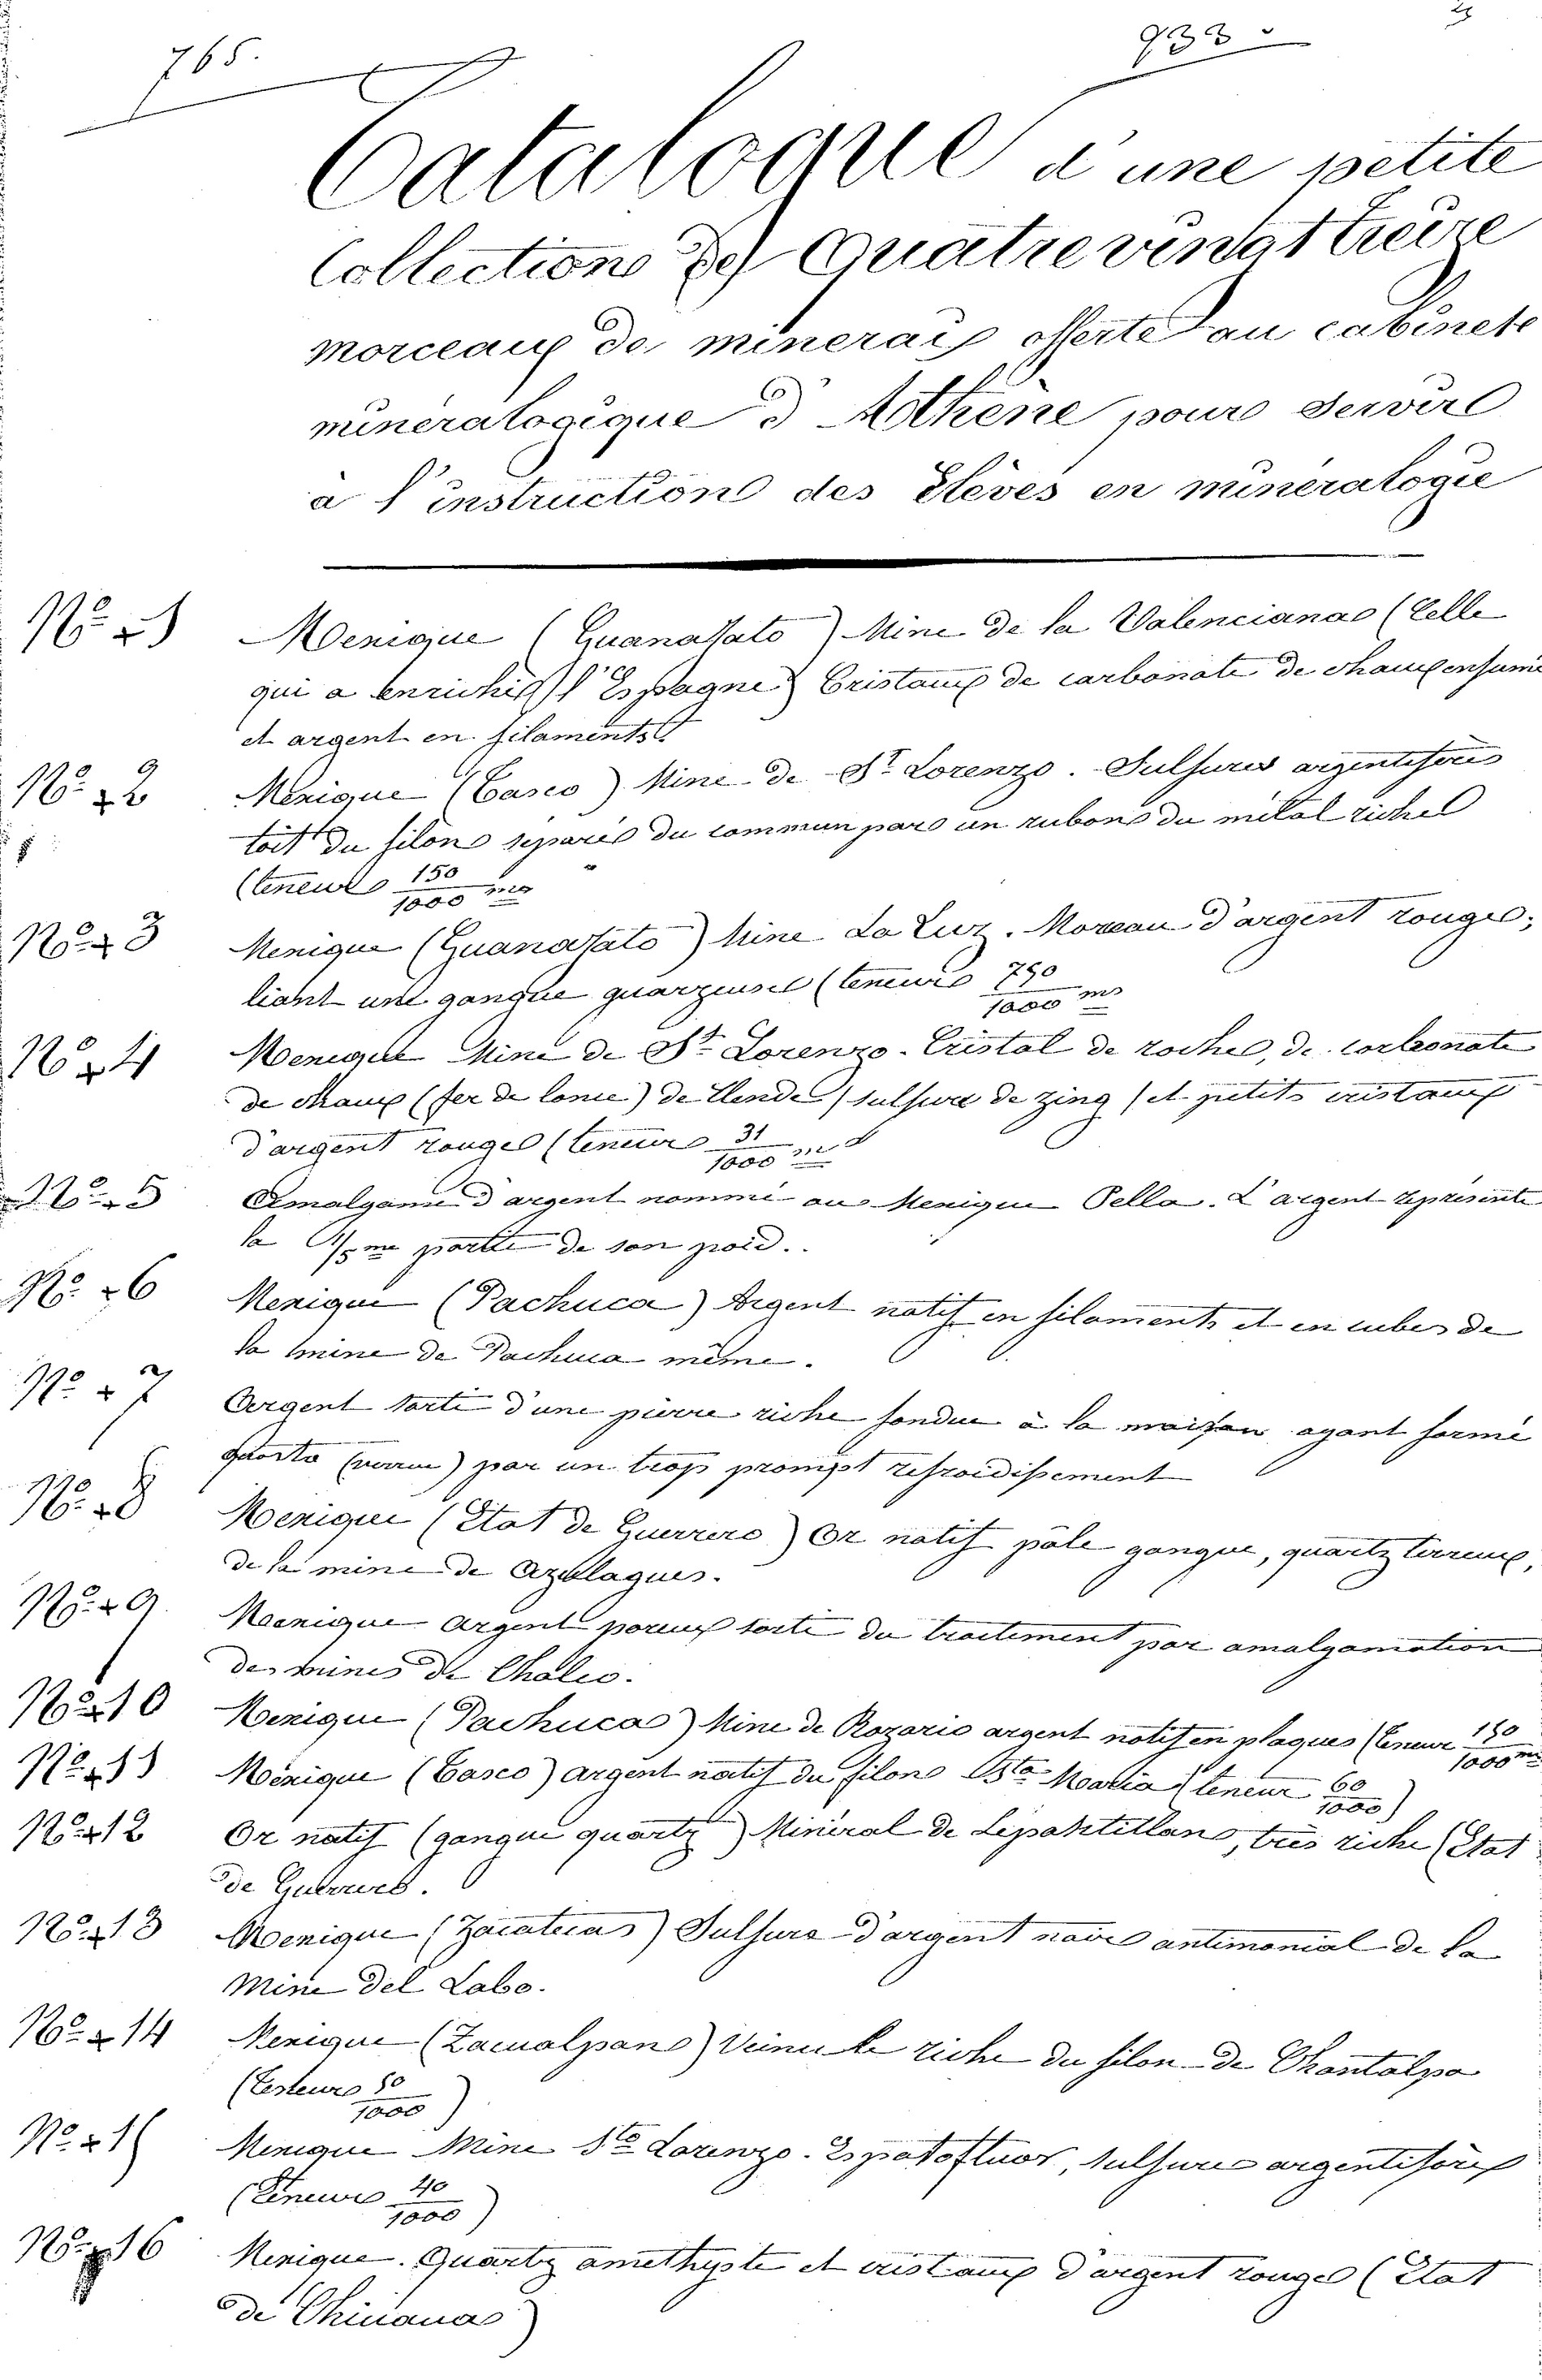 765.
933
Catalogue d'une petite
Collection De Quatre vingt treize
morceaux de minerais offerte au cabinet
mineralogique d'Athène pour servir
à l'instruction des Elèves en mineralogie
No. 1 Mexique (Guanaxato) Mine de la Valenciana (Celle
qui a enrichie l'Espagne) Cristaux de carbonate de chaux
et argent en filaments
No. 2 Mexique (Tasco) Mine de St. Lorenzo. Sulfures argentiferes
toit du filon separés du commun par un rubon du métal riche
(teneur 150/1000 mes
No. 3 Mexique (Guanaxato) Mine La Luz. Morceau d'argent rouge;
liant une gangue quarzeuse (teneur 750/1000 ms
No. 4 Mexique Mine de St. Lorenzo. Cristal de roche, de carbonate
de chaux (fer de lance) de blende (sulfure de zing) et petits cristaux
d'argent rouge (teneur 31/1000 m
No. 5 Amalgame d'argent nommé au Mexique Pella. L'argent représente
la partie de son poid.
No. 6 Mexique (Pachuca) Argent natif en filaments et en cubes de
la mine de Pachuca même.
No. 7 Argent sorti d'une pierre riche fondue à la maison ayant formé
par un trop prompt refroidissement
No. 8 Mexique (Etat de Guerrero) Or natif pâle gangue, quartz terreux,
de la mine de
No. 9 Mexique Argent poreux sorti du traitement par amalgamation
des mines de Chalco.
No. 10 Mexique (Pachuca) Mine de Rozario argent natif en plaques (teneur 150/1000 m
No. 11 Méxique (Tasco) argent natif du filon Sta. Maria (teneur 60/1000)
No. 12 Or natif (gangue quartz) Minéral de Tepantitlan, très riche (Etat
de Guerrero.
No. 13 Mexique (Zacatecas) Sulfure d'argent noire antimonial de la
Mine del Lobo.
No. 14 Mexique (Zacualpan) Veinule riche du filon de Chontalpa
(Teneur 50/1000)
No. 15 Mexique Mine St. Lorenzo. Espatofluor, sulfures argentifères
(Teneur 40/1000)
No. 16 Mexique. Quartz amethyste et cristaux d'argent rouge (Etat
de Chiuaua)